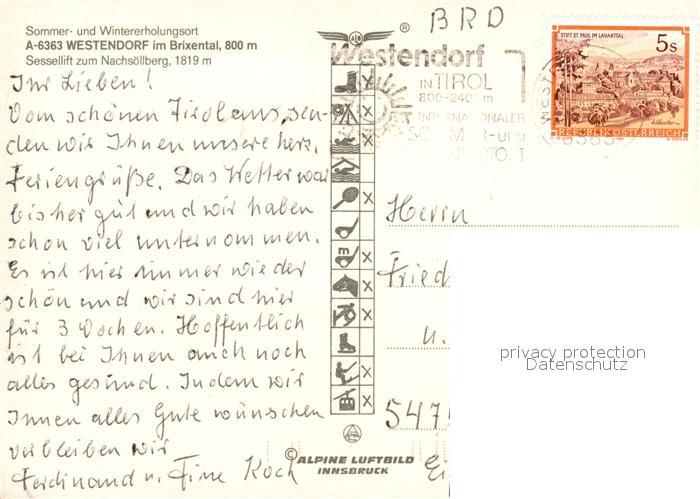 Sommer- und Wintererholungsort
A-6363 WESTENDORF im Brixental, 800 m
Sessellift zum Nachsöllberg, 1819 m
Ihr Lieben!
Vom schönen Tirol aus, sen-
den wir Ihnen unsere herz.
Feriengrüße. Das Wetter war
bisher gut und wir haben
schon viel unternommen.
Es ist hier immer wieder
schön und wir sind hier
für 3 Wochen. Hoffentlich
ist bei Ihnen auch noch
alles gesund. Indem wir
Ihnen alles Gute wünschen
verbleiben wir
Ferdinand u. Fine Koch
®
Westendorf
IN TIROL
800-2400 m
INTERNATIONALER
SOMMER- UND
SPORTORT
© ALPINE LUFTBILD
INNSBRUCK
BRD
STIFT ST. PAUL IM LAVANTTAL
5s
REPUBLIK ÖSTERREICH
6363
Herrn
Fried
u.
547
privacy protection
Datenschutz